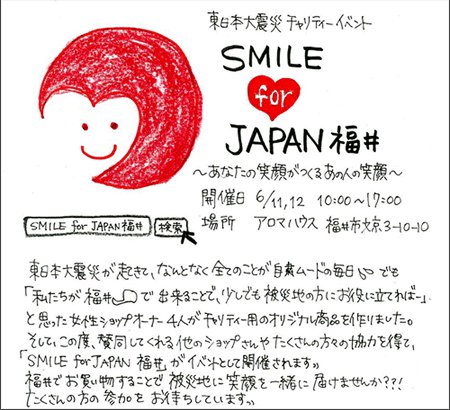 東日本大震災 チャリティーイベント
SMILE
for
JAPAN 福井
～あなたの笑顔がつくるあの人の笑顔～
開催日 6/11,12 10:00~17:00
場所 アロマハウス 福井市文京3-10-10
SMILE for JAPAN 福井 検索
東日本大震災が起きて、なんとなく全てのことが自粛ムードの毎日 でも
「私たちが福井 で出来ることで、少しでも被災地の方にお役に立てればー」
と思った女性ショップオーナー4人がチャリティー用のオリジナル商品を作りました。
そして、この度、賛同してくれる他のショップさんやたくさんの方々の協力を得て、
「SMILE for JAPAN 福井」がイベントとして開催されます。
福井でお買い物することで被災地に笑顔を一緒に届けませんか??!
たくさんの方の参加をお待ちしています。